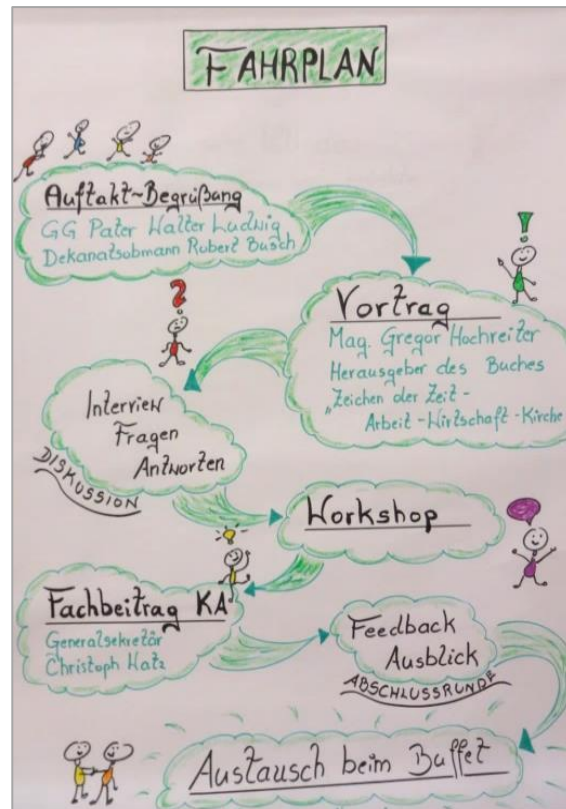 FAHRPLAN
Auftakt-Begrüßung
GG Pater Walter Ludwig
Dekanatsobmann Robert Busch
Vortrag
Mag. Gregor Hochreiter
Herausgeber des Buches
"Zeichen der Zeit-
Arbeit-Wirtschaft-Kirche
Interview
Fragen
Antworten
DISKUSSION
Workshop
Fachbeitrag KA
Generalsekretär
Christoph Watz
Feedback
Ausblick
ABSCHLUSSRUNDE
Austausch beim Buffet